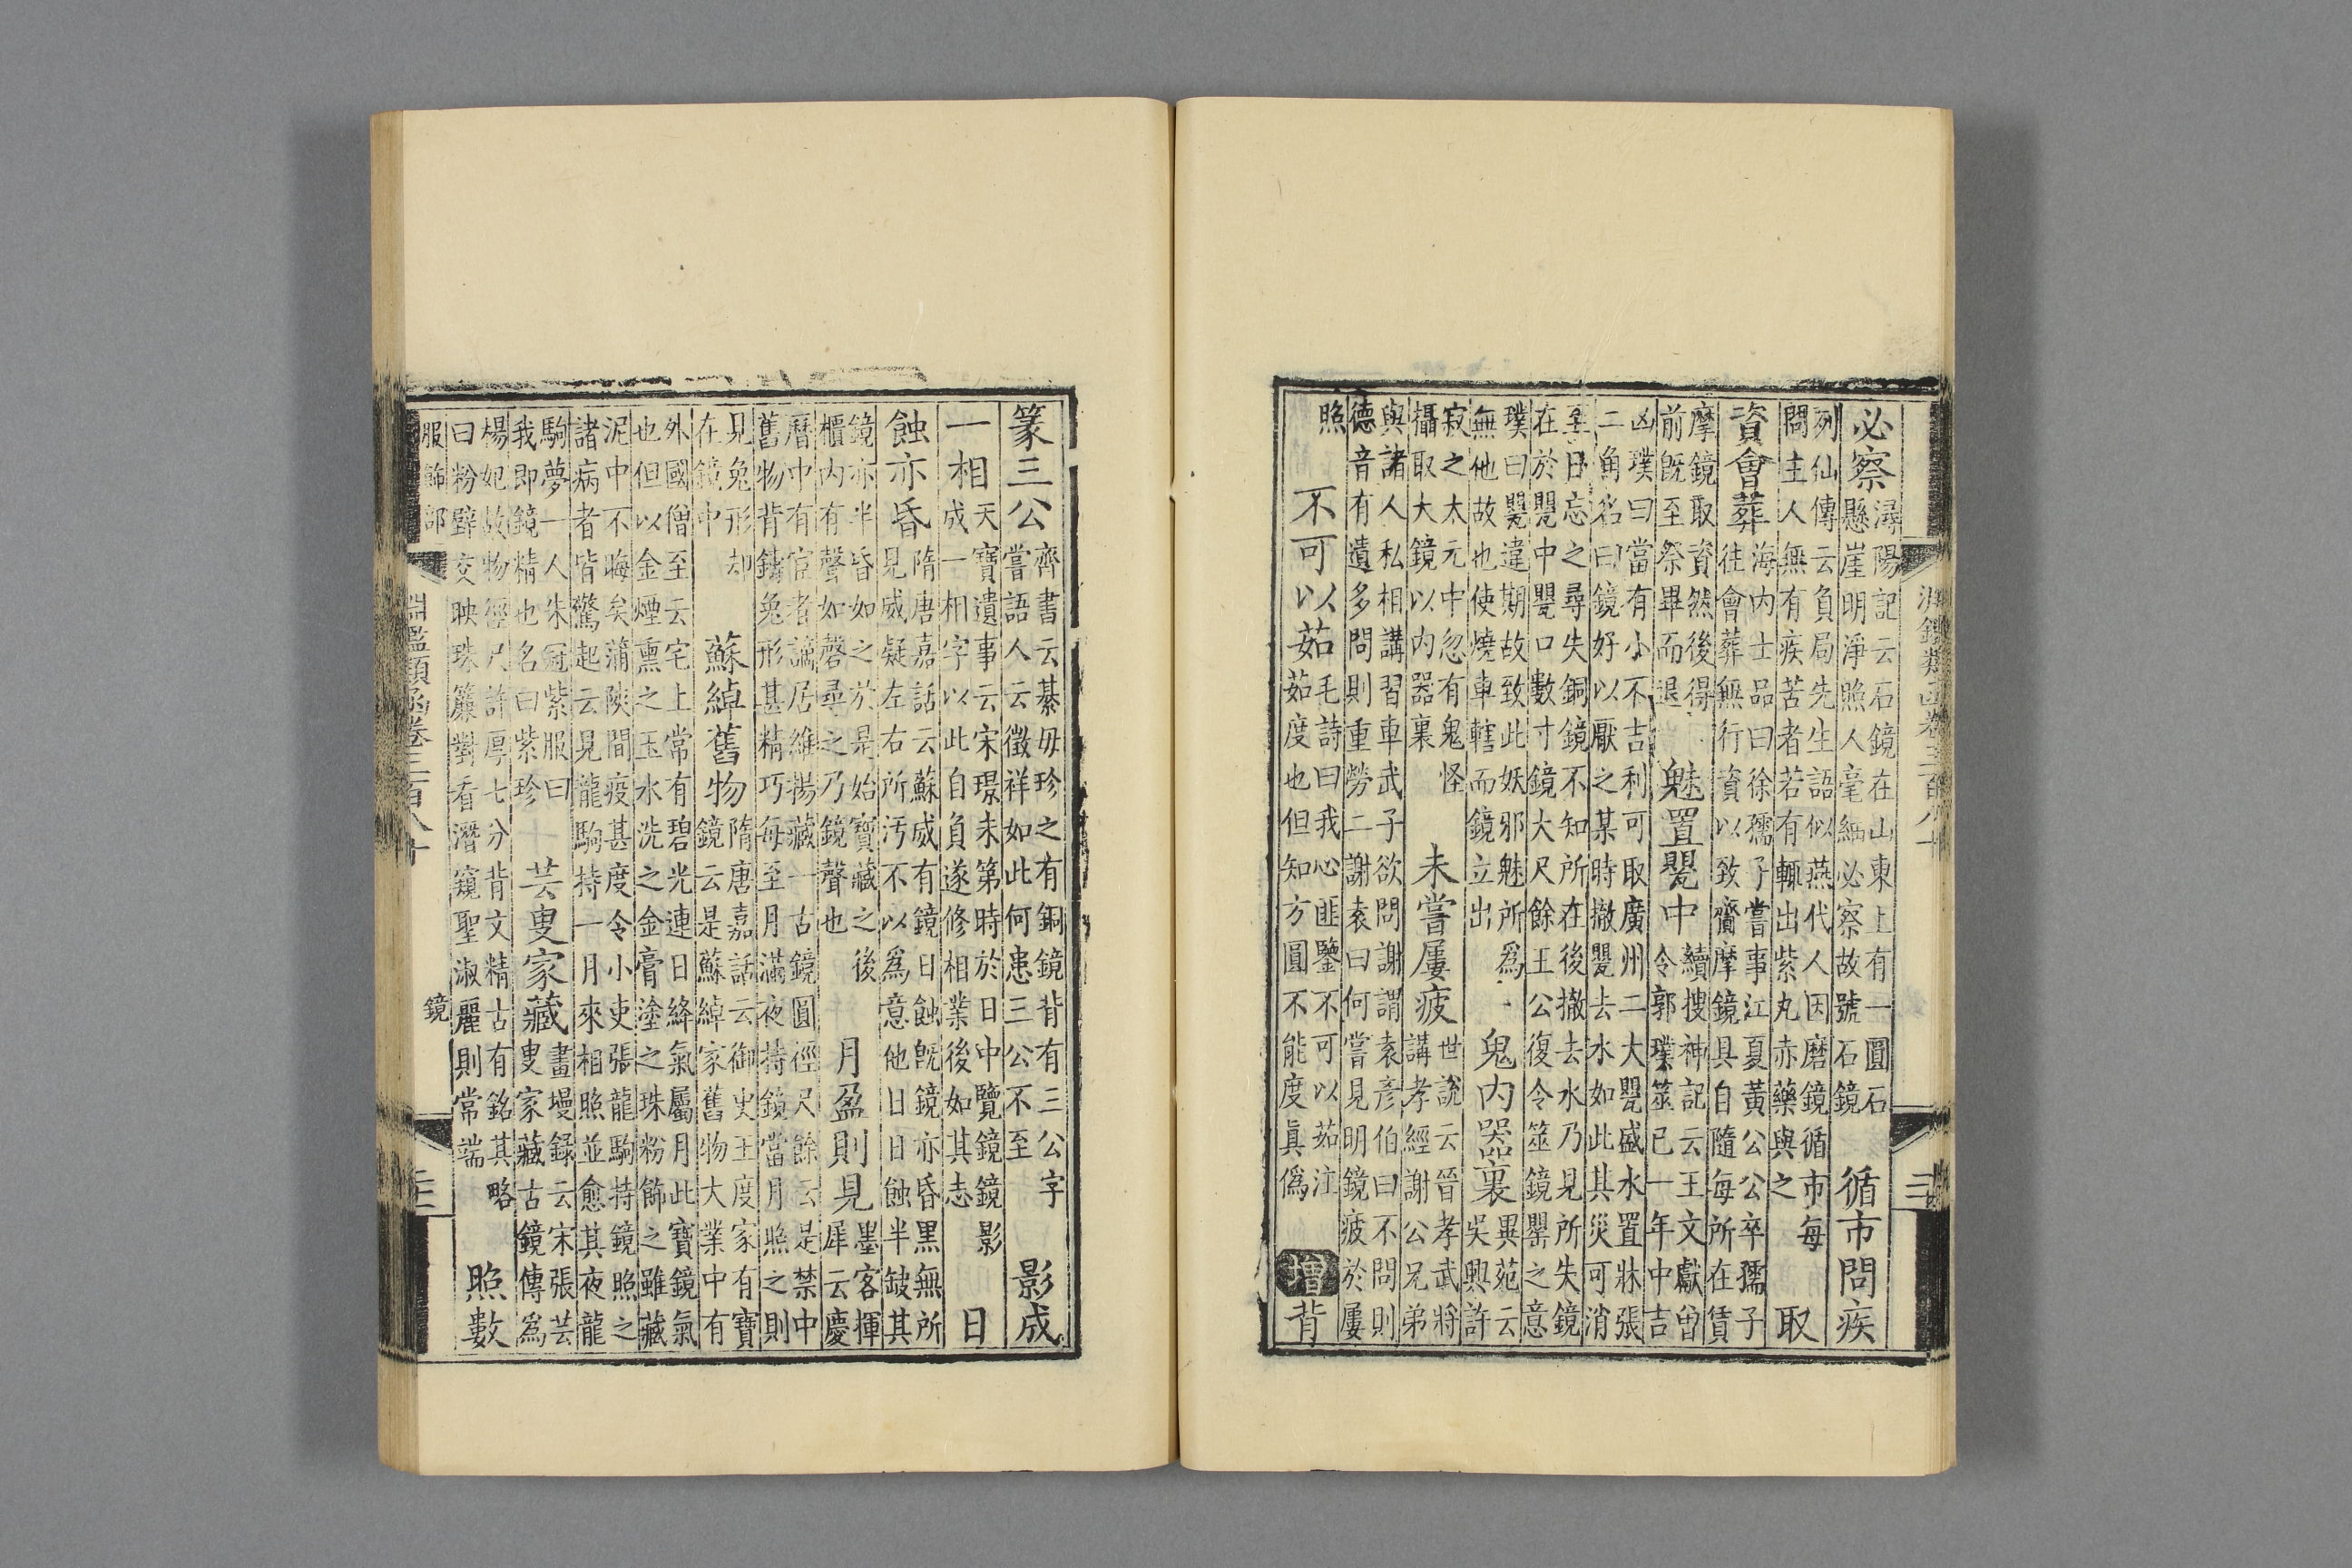 淵鑑類函卷三百八十
三
必察
潯陽記云石鏡在山東上有一圓石
懸崖明淨照人毫細必察故號石鏡
循市問疾
列仙傳云負局先生語似燕代人因磨鏡循市每
問主人無有疾苦者若有輒出紫丸赤藥與之
取
資會葬
海內士品曰徐孺子嘗事江夏黃公公卒孺子
往會葬無行資以致齎摩鏡具自隨每所在賃
摩鏡取資然後得
前既至祭畢而退
魅置甖中
續搜神記云王文獻曾
令郭璞筮己一年中吉
凶璞曰當有小不吉利可取廣州二大甖盛水置牀張
二角名曰鏡好以厭之某時撤甖去水如此其災可消
至日忘之尋失銅鏡不知所在後撤去水乃見所失鏡
在於甖中甖口數寸鏡大尺餘王公復令筮鏡甖之意
璞曰甖違期故致此妖邪魅所爲
無他故也使燒車轄而鏡立出
鬼内器裏
異苑云
吳興許
寂之太元中忽有鬼怪
攝取大鏡以内器裏
未嘗屢疲
世說云晉孝武將
講孝經謝公兄弟
與諸人私相講習車武子欲問謝謂袁彥伯曰不問則
德音有遺多問則重勞二謝袁曰何嘗見明鏡疲於屢
照
不可以茹
毛詩曰我心匪鑒不可以茹注
茹度也但知方圓不能度眞僞
增
背
篆三公
齊書云綦毋珍之有銅鏡背有三公字
嘗語人云徵祥如此何患三公不至
影成
一相
天寶遺事云宋璟未第時於日中覽鏡鏡影
成一相字以此自負遂修相業後如其志
日
蝕亦昏
隋唐嘉話云蘇威有鏡日蝕既鏡亦昏黑無所
見威疑左右所汚不以爲意他日日蝕半缺其
鏡亦半昏如之於是始寶藏之後
櫃内有聲如磬尋之乃鏡聲也
月盈則見
墨客揮
犀云慶
曆中有宦者謫居維揚藏一古鏡圓徑尺餘云是禁中
舊物背鑄兔形甚精巧每至月滿夜持鏡當月照之則
見兔形却
在鏡中
蘇綽舊物
隋唐嘉話云御史王度家有寶
鏡云是蘇綽家舊物大業中有
外國僧至云宅上常有碧光連日絳氣屬月此寶鏡氣
也但以金煙熏之玉水洗之金膏塗之珠粉飾之雖藏
泥中不晦矣蒲陝間疫甚度令小吏張龍駒持鏡照之
諸病者皆驚起云見龍駒持一月來相照並愈其夜龍
駒夢一人朱冠紫服曰
我即鏡精也名曰紫珍
芸叟家藏
畫墁録云宋張芸
叟家藏古鏡傳爲
楊妃故物徑尺許厚七分背文精古有銘其略
曰粉壁交映珠簾對看潛窺聖淑麗則常端
照數
服飾部
鏡
淵鑑類函卷三百八十